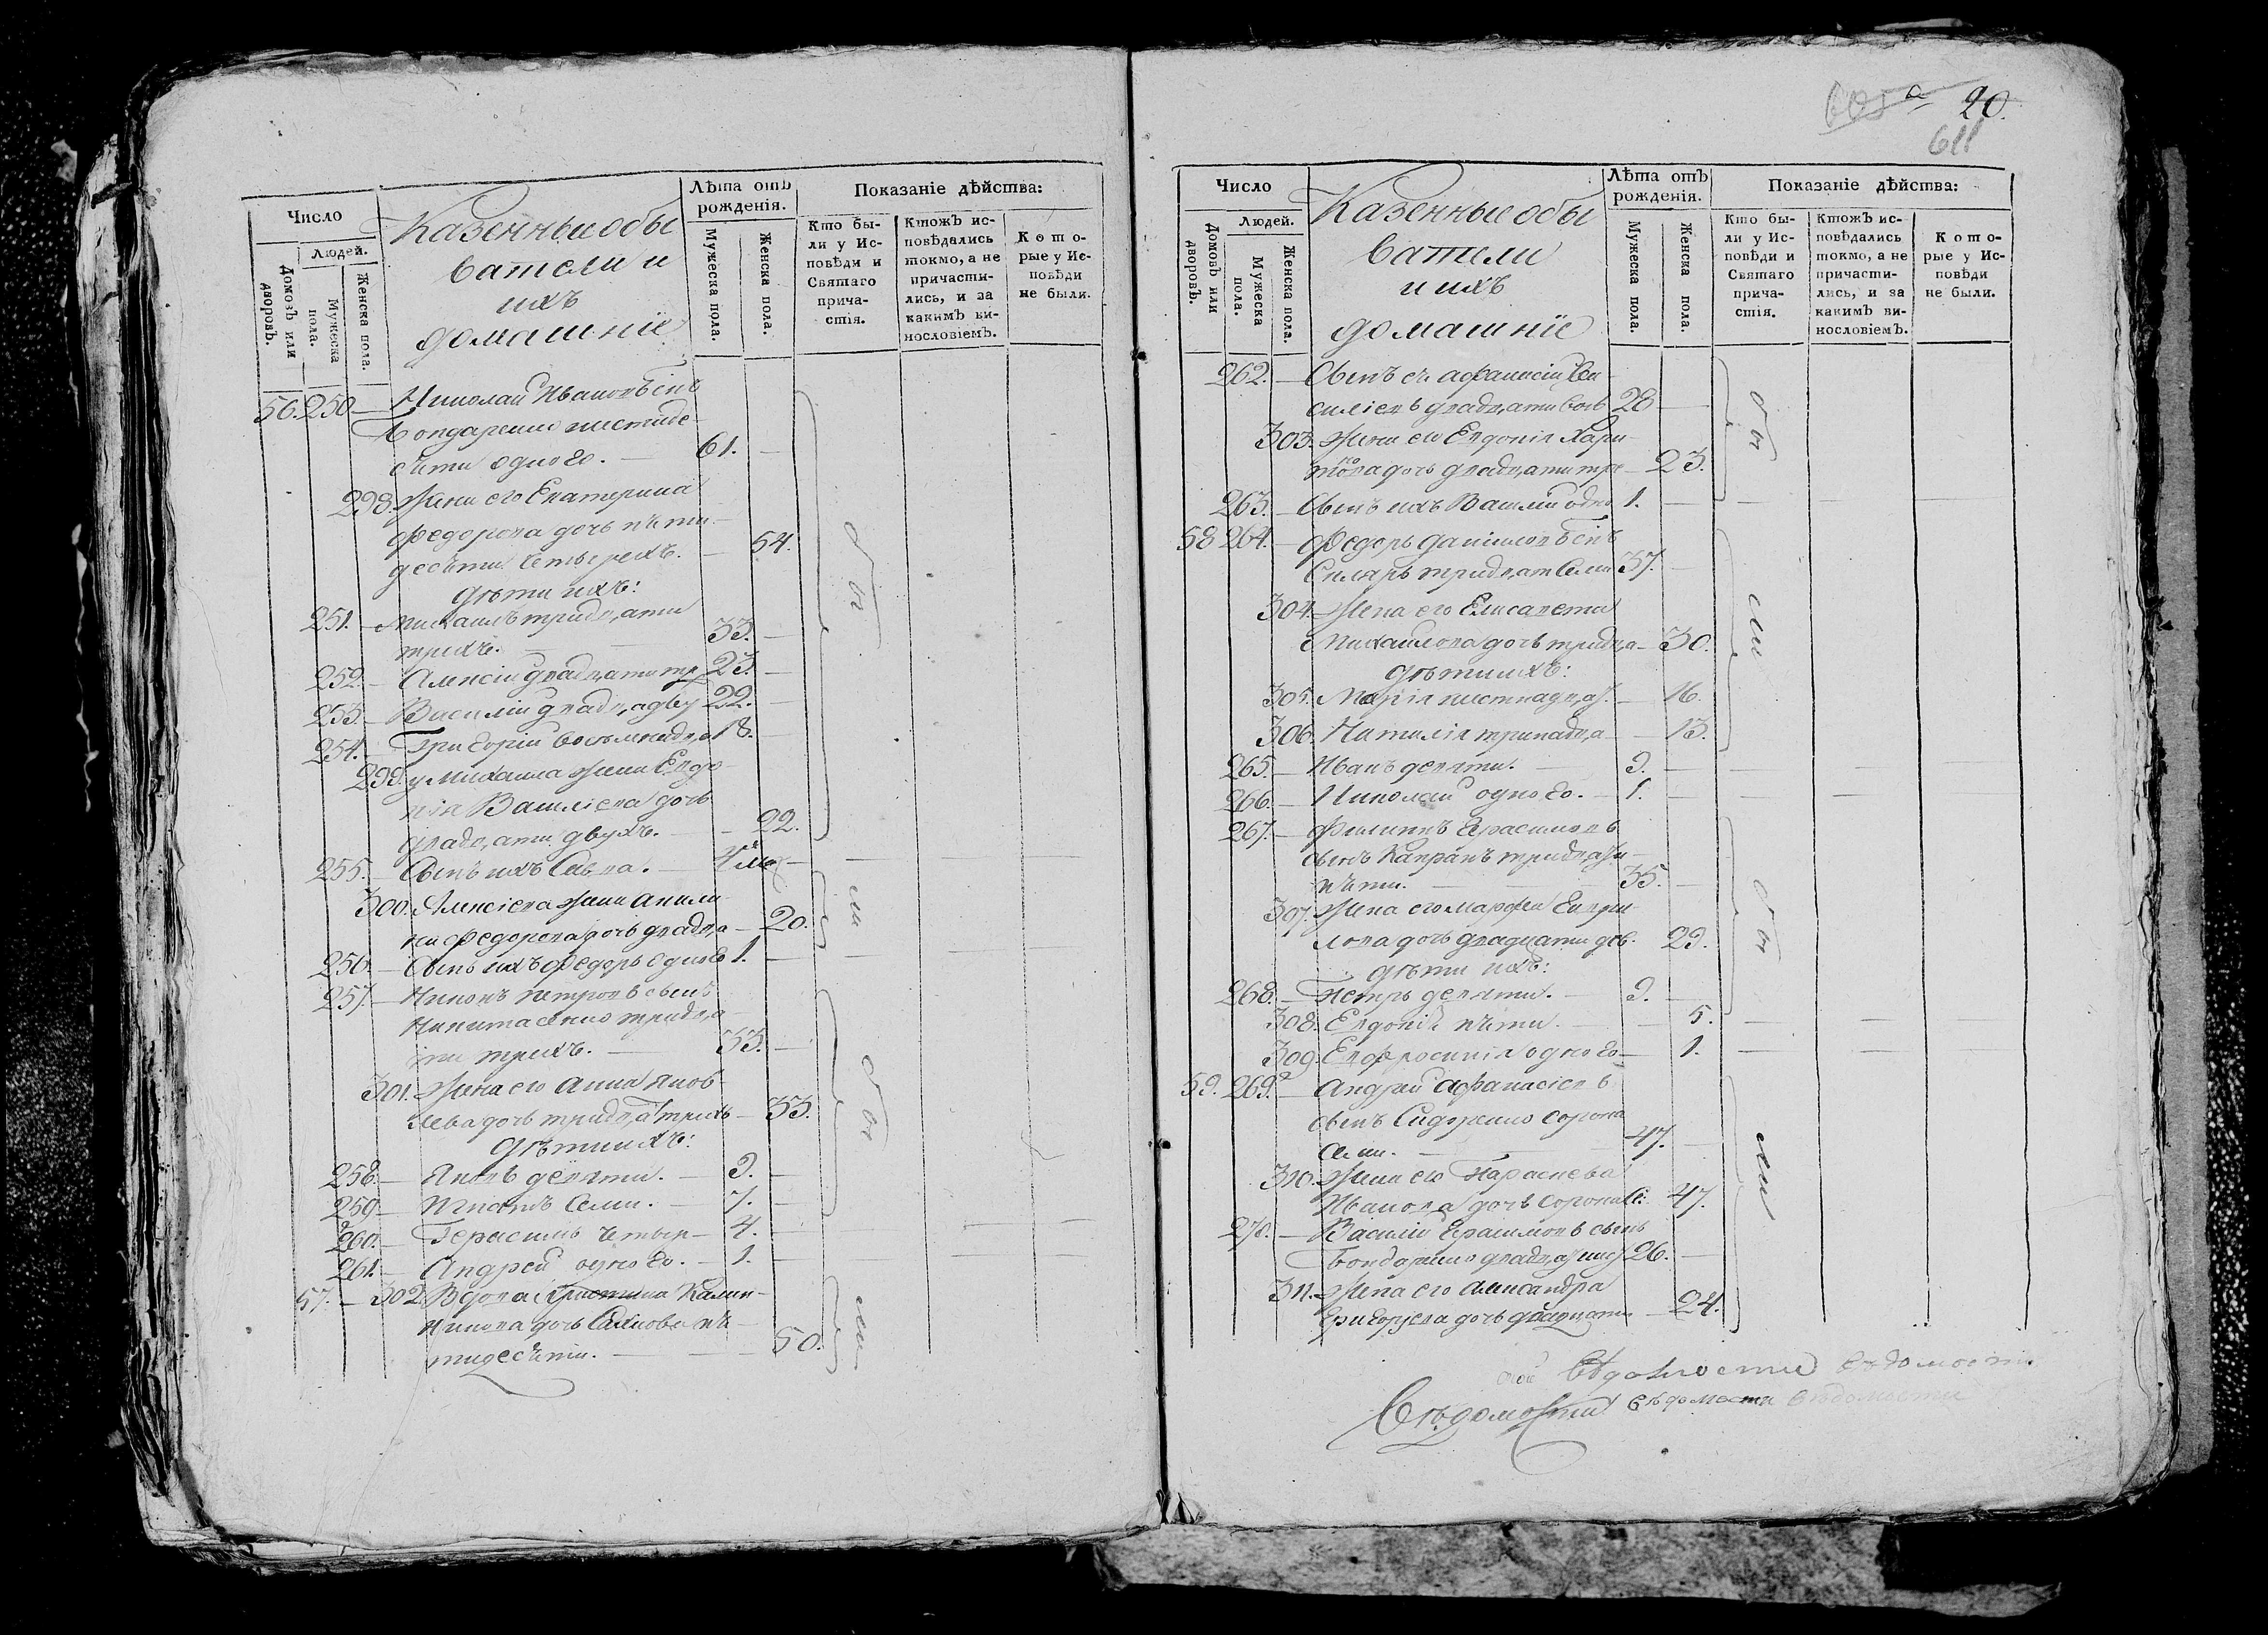 Число
Казенные обы
Лѣта отъ рожденія.
Показаніе дѣйства:
Людей.
ватели и
ихъ
домашніе
Домовъ или дворовъ.
Мужеска пола.
Женска пола.
Мужеска пола.
Женска пола.
Кто бы-
ли у Ис-
повѣди и
Святаго
прича-
стія.
Ктожъ ис-
повѣдались
токмо, а не
причасти-
лись, и за
какимъ ви-
нословіемъ.
Кото-
рые у Ис-
повѣди
не были.
56. 250 — Николай Ивановъ снъ
Бондаренко шестиде
сяти одного. — 61. —
298. Жена его Екатерина
Федорова дочь пяти
десяти четырехъ. — 54.
Дѣти ихъ:
251. — Михаилъ тридцати
трихъ. — 33. —
252. — Алексій двадцати тр 23. —
253. — Василій двадцадву 22. —
254. — Григорій восьмнадца 18. —
299. у Михаила жена Евдо
кія Василіева дочь
двадцати двухъ. — 22.
255. — Сынъ ихъ Савва. — 4 мѣ —
300. Алексіева жена Акили
на Федорова дочь двадца — 20.
256. — Сынъ ихъ Федоръ одного 1. —
257. — Никонъ Петровъ сынъ
Никитасенко тридца
ти трихъ. — 33. —
301. Жена его Анна Яков
лева дочь тридца трихъ — 33.
Дѣти ихъ:
258. — Яковъ девяти. — 9. —
259. — Игнатъ семи. — 7. —
260. — Герасимъ четыр — 4. —
261. — Андрей одного. — 1. —
57. — 302. Вдова Христина Калин-
никова дочь пя
тидесяти. — 50.
были
были
были
были
20.
611
Число
Казенные обы
Лѣта отъ рожденія.
Показаніе дѣйства:
Людей.
ватели
и ихъ
домашніе
Домовъ или дворовъ.
Мужеска пола.
Женска пола.
Мужеска пола.
Женска пола.
Кто бы-
ли у Ис-
повѣди и
Святаго
прича-
стія.
Ктожъ ис-
повѣдались
токмо, а не
причасти-
лись, и за
какимъ ви-
нословіемъ.
Кото-
рые у Ис-
повѣди
не были.
262. — Сынъ ея Афанасій Ва
силіевъ двадцати вось 28 —
303. Жена его Евдокія Хари-
това дочь двадцати тре — 23.
263. — Сынъ ихъ Василій одно 1. —
58 264. — Федоръ Даниловъ снъ
Скляръ тридцат семи 37. —
304. Жена его Елисавета
Михайлова дочь тридца — 30.
Дѣти ихъ:
305. Марія шестнадца. — 16.
306. Наталія тринадца — 13.
265. — Иванъ девяти. — 9. —
266. — Николай одного. — 1. —
267. — Филиппъ Герасимовъ
сынъ Капранъ тридцати
пяти. — 35. —
307. Жена его Марфа
дочь двадцати дев. 29.
Дѣти ихъ:
268. — Петръ девяти. — 9. —
308. Евдокія пяти. — 5.
309. Евфросинія одного — 1.
59. 269. — Андрей Афанасіевъ
сынъ Сидоренко сорока
семи. — 47. —
310. Жена его Параскева
Иванова дочь сорока се: 47.
270. — Василій Герасимовъ сынъ
Бондаренко двадца шес 26. —
311. Жена его Александра
Григорьева дочь двадцати — 24.
Вѣдомости вѣдомости
Вѣдомости вѣдомости вѣдомости